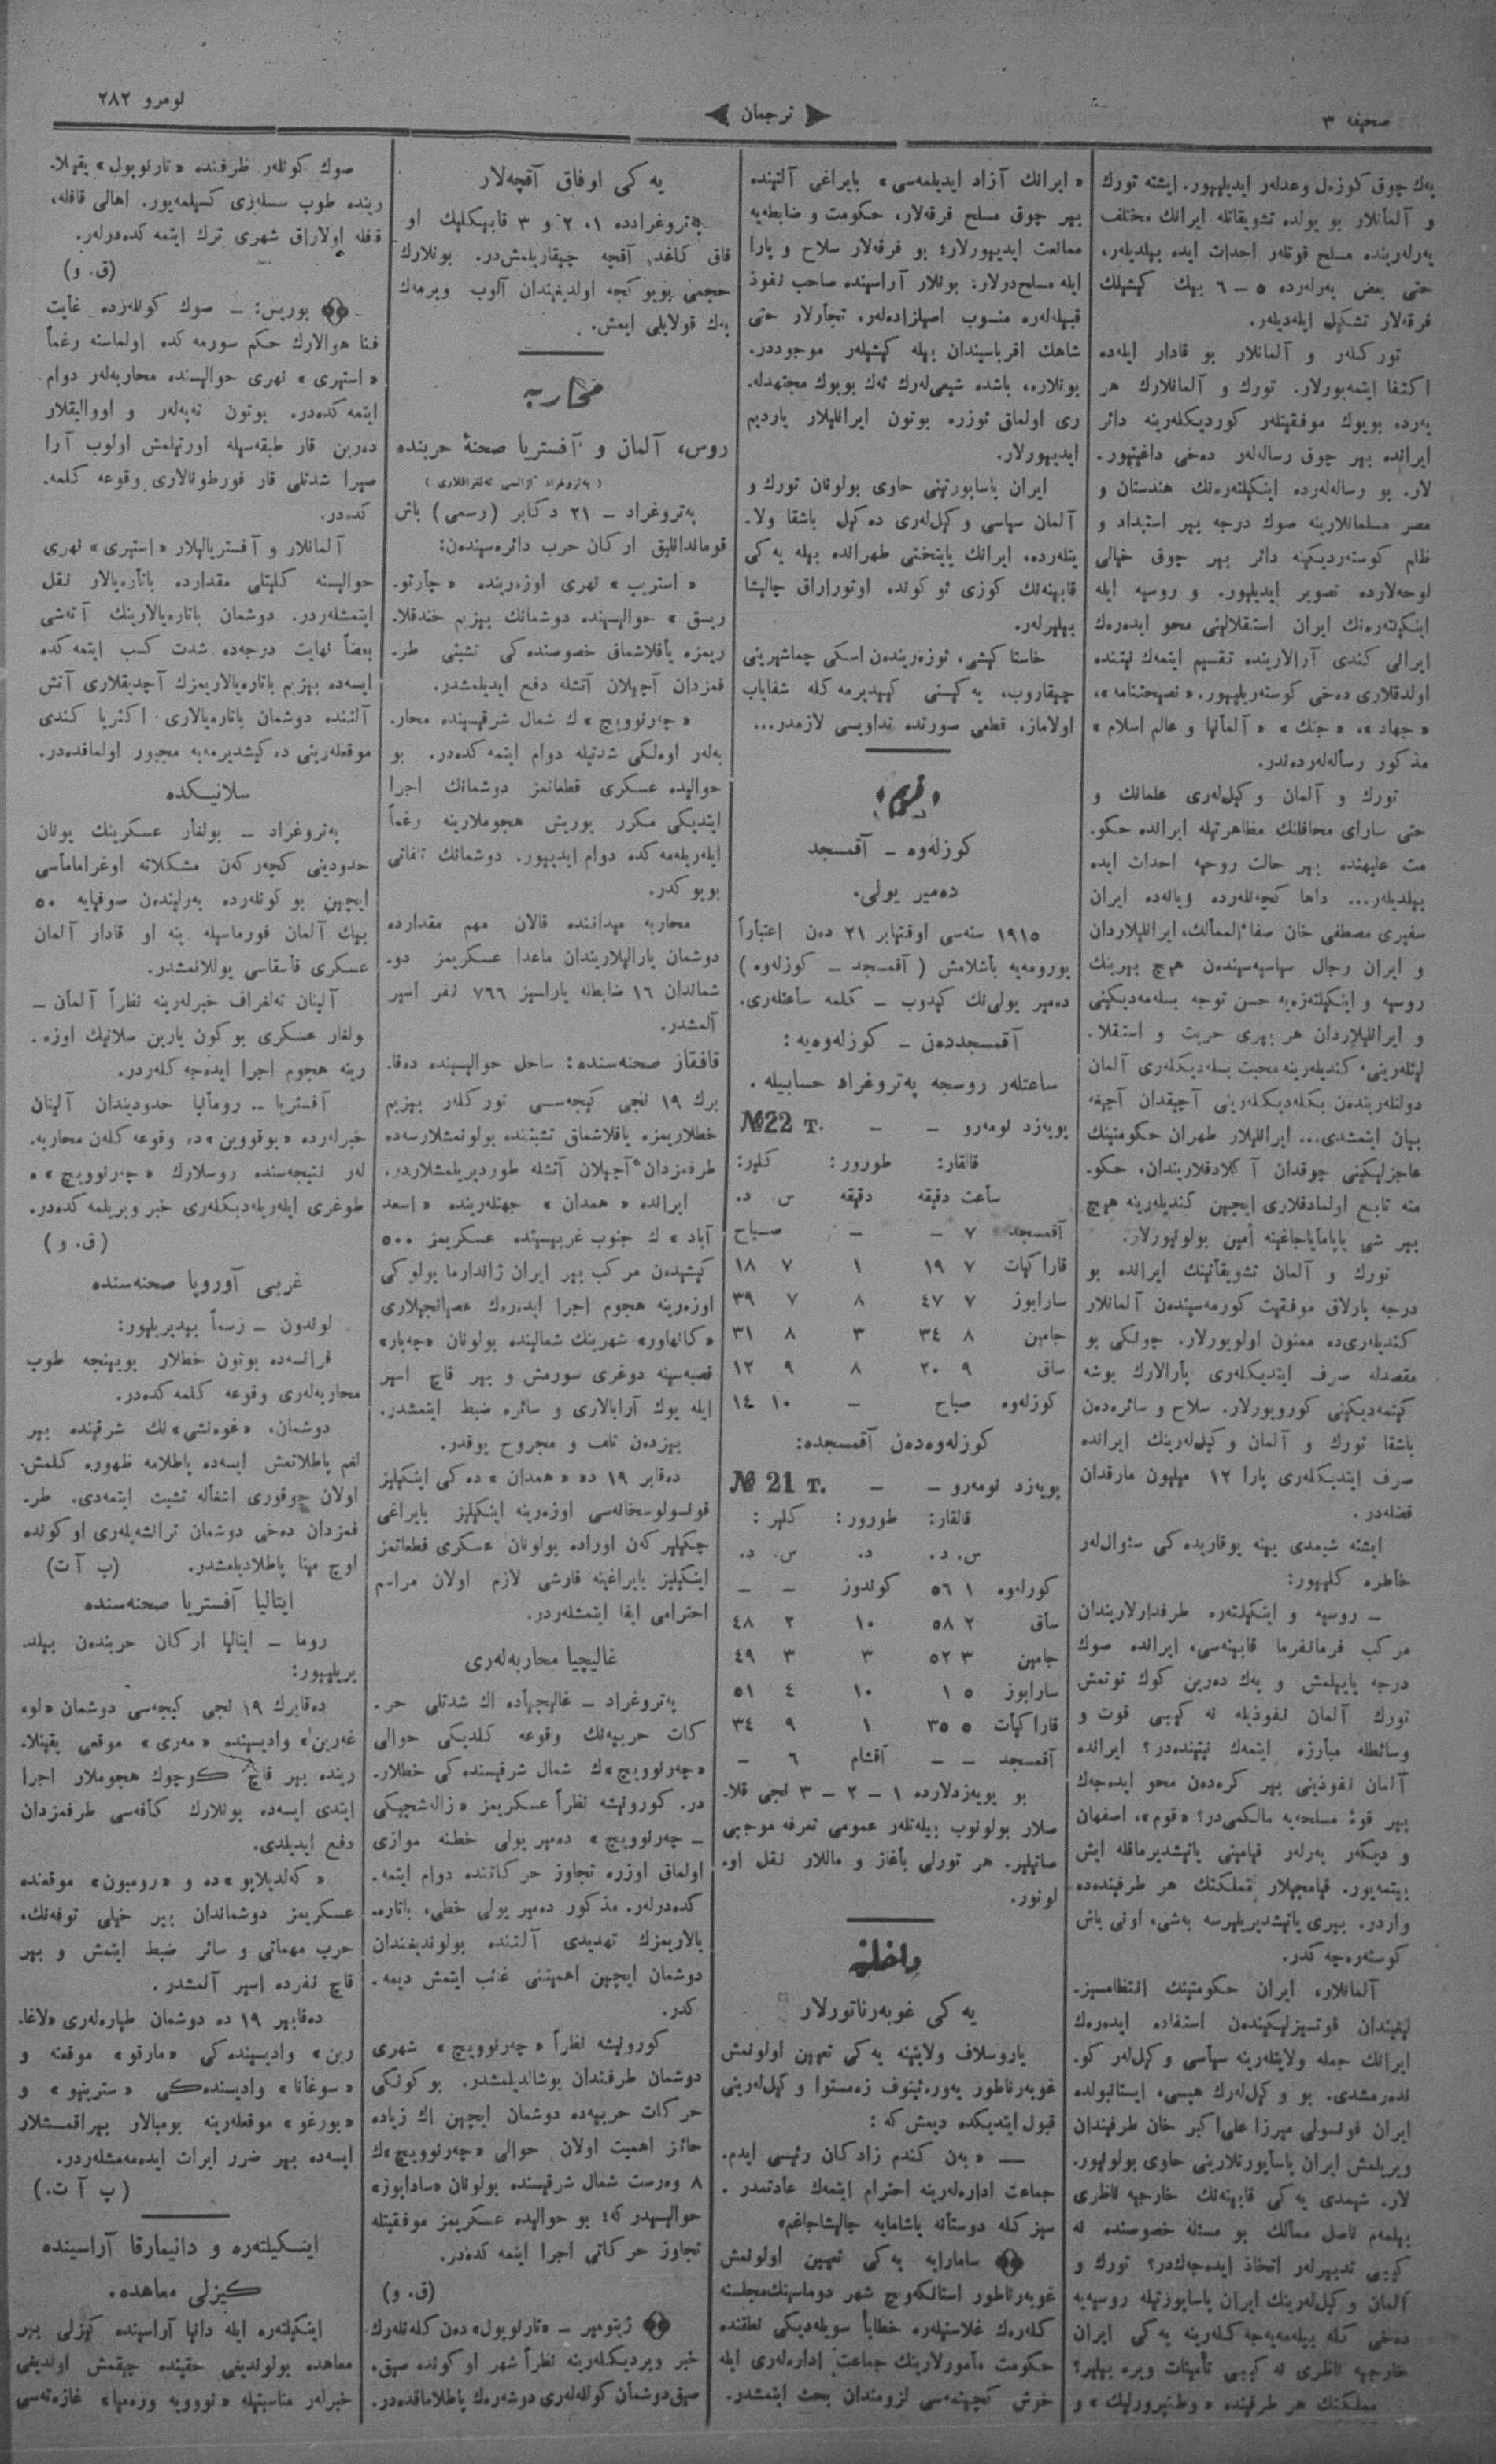 صحیفه ٣
ترجمان
نومرو ٢٨٢
پەك چوق كوزەل وعدلەر ایدیلییور. ایشته تورك
و آلمانلار بو یولده تشویقاتله ایرانك مختلف
یەرلەرینده مسلح قوتلەر احداث ایده بیلدیلەر،
حتی بعض یەرلەرده ٥ – ٦ بیك كیشیلك
فرقەلار تشكیل ایلەدیلەر.
توركلەر و آلمانلار بو قادار ایلەده
اكتفا ایتمەیورلار. تورك و آلمانلارك هر
یەرده بویوك موفقیتلەر كوردیكلەرینه دائر
ایرانده بیر چوق رسالەلەر دەخی داغیتییور.
لار. بو رسالەلەرده اینكیلتەرەنك هندستان و
مصر مسلمانلارینه صوك درجه بیر استبداد و
ظلم كوستەردیكینه دائر بیر چوق خیالی
لوحەلارده تصویر ایدیلییور. و روسیه ایله
اینكیلتەرەنك ایران استقلالینی محو ایدەرەك
ایرانی كندی آرالارینده تقسیم ایتمەك نیتنده
اولدقلاری دەخی كوستەریلییور. «نصیحتنامه»،
«جهاد»، «جنك» «آلمانیا و عالم اسلام»
مذكور رسالەلەردەندر.
تورك و آلمان وكیل‌لەری علمانك و
حتی سارای محافلنك مظاهرتیله ایرانده حكو.
مت علیهنده بیر حالت روحیه احداث ایده
بیلدیلەر... داها كچەنلەرده ویانەده ایران
سفیری مصطفی خان صفاءالممالك، ایرانلیلاردان
و ایران رجال سیاسیەسیندەن هیچ بیرینك
روسیه و اینكیلتەرەیه حسن توجه بسلەمەدیكینی
و ایرانلیلاردان هر بیری حریت و استقلا.
لیتلەرینی كندیلەرینه محبت بسلەدیكلەری آلمان
دولتلەریندەن بكلەدیكلەرینی آچیقدان آچیغه
بیان ایتمشدی... ایرانلیلار طهران حكومتینك
عاجزلیكینی چوقدان آكلادقلاریندان، حكو.
مته تابع اولمادقلاری ایچین كندیلەرینه هیچ
بیر شی یاپامایاجاغینه أمین بولونیورلار.
تورك و آلمان تشویقاتینك ایرانده بو
درجه پارلاق موفقیت كورمەسیندەن آلمانلار
كندیلەری‌ده ممنون اولویورلار. چونكی بو
مقصدله صرف ایتدیكلەری پارالارك بوشه
كیتمەدیكینی كورویورلار. سلاح و سائرەدەن
باشقا تورك و آلمان وكیل‌لەرینك ایرانده
صرف ایتدیكلەری پارا ١٢ میلیون مارقدان
فضلەدر.
ایشته شیمدی یینه یوقاریده‌كی سئوال‌لەر
خاطره كلییور:
– روسیه و اینكیلتەره طرفدارلاریندان
مركب فرمانفرما قابینەسی، ایرانده صوك
درجه یایلمش و پەك دەرین كوك توتمش
تورك آلمان نفوذیله نه كیبی قوت و
وسائطله مبارزه ایتمەك نیتنده‌در؟ ایرانده
آلمان نفوذینی بیر كرەدەن محو ایدەجەك
بیر قوۀ مسلحەیه مالكمی‌در؟ «قوم»، اصفهان
و دیكەر یەرلەر قیامینی یاتیشدیرماقله ایش
بیتمەیور. قیامجیلار مملكتك هر طرفینده‌ده
واردر. بیری یاتیشدیریلیرسه بەشی، اونی باش
كوستەرەجەكدر.
آلمانلاره ایران حكومتینك انتظامسیز.
لیغیندان قوتسیزلیكیندەن استفاده ایدەرەك
ایرانك جمله ولایتلەرینه سیاسی وكیل‌لەر كو.
ندەرمشدی. بو وكیل‌لەرك هپسی، ایستانبولده
ایران قونسولی میرزا علی‌اكبر خان طرفیندان
ویریلمش ایران پاسپورتلارینی حاوی بولونیور.
لار. شیمدی یەكی قابینەنك خارجیه ناظری
بیلمەم فاصل ممالك بو مسئله خصوصنده نه
كیبی تدبیرلەر اتخاذ ایدەجەكدر؟ تورك و
آلمان وكیل‌لەرینك ایران پاسپورتیله روسیەیه
دەخی كله بیلەمەیەجەكلەرینه یەكی ایران
خارجیه ناظری نه كیبی تأمینات ویره بیلیر؟
مملكتك هر طرفینده «وطنپرورلیك» و
«ایرانك آزاد ایدیلمەسی» بایراغی آلتینده
بیر چوق مسلح فرقەلار، حكومت و ضابطەیه
ممانعت ایدییورلار؛ بو فرقەلار سلاح و پارا
ایله مسلح‌درلار؛ بونلار آراسینده صاحب نفوذ
قبیلەلەره منسوب اصیلزادەلەر، تجارلار حتی
شاهك اقرباسیندان بیله كیشیلەر موجوددر.
بونلاره، باشده شیعی‌لەرك ئەك بویوك مجتهدلە.
ری اولماق ئوزره بوتون ایرانلیلار یاردیم
ایدییورلار.
ایران پاساپورتینی حاوی بولونان تورك و
آلمان سیاسی وكیل‌لەری دەكیل باشقا ولا.
یتلەرده، ایرانك پایتختی طهرانده بیله یەكی
قابینەنك كوزی ئوكونده اوتوراراق چالیشا
بیلیرلەر.
خاستا كیشی، ئوزەریندەن اسكی چماشیرینی
چیقاروب، یەكیسنی كییدیرمەكله شفایاب
اولاماز، قطعی صورتده تداویسی لازمدر...
قریم
كوزلەوه – آقمسجد
دەمیر یولی.
١٩١٥ سنەسی اوقتیابر ٢١ دەن اعتباراً
یورومەیه باشلامش (آقمسجد – كوزلەوه)
دەمیر یولی‌نك كیدوب – كلمه ساعتلەری.
آقمسجددەن – كوزلەوەیه:
ساعتلەر روسجه پەتروغراد حسابیله.
پویەزد نومەرو – – №22 т.
قالقار: طورور: كلیر:
ساعت دقیقه دقیقه س. د.
آقمسجد ٧ – – صباح
قاراكیات ٧ ١٩ ١ ٧ ١٨
سارابوز ٧ ٤٧ ٨ ٧ ٣٩
جامین ٨ ٣٤ ٣ ٨ ٣١
ساق ٩ ٢٠ ٨ ٩ ١٢
كوزلەوه صباح – ١٠ ١٤
كوزلەوەدەن آقمسجده:
پویەزد نومەرو – – № 21 т.
قالقار: طورور: كلیر:
س. د. د. س. د.
كوزلەوه ١ ٥٦ كوندوز – –
ساق ٢ ٥٨ ١٠ ٢ ٤٨
جامین ٣ ٥٢ ٣ ٣ ٤٩
سارابوز ٥ ١ ١٠ ٤ ٥١
قاراكیات ٥ ٣٥ ١ ٩ ٣٤
آقمسجد – – آقشام ٦ –
بو پویەزدلارده ١ – ٢ – ٣ نجی قلا.
صلار بولونوب بیلەتلەر عمومی تعرفه موجبی
صاتیلیر. هر تورلی باغاژ و ماللار نقل او.
لونور.
داخلیه
یەكی غوبەرناتورلار
یاروسلاف ولایتینه یەكی تعیین اولونمش
غوبەرناطور یەورەئینوف زەمستوا وكیل‌لەرینی
قبول ایتدیكده دیمش كه:
— «بەن كندم زادكان رئیسی ایدم.
جماعت ادارەلەرینه احترام ایتمەك عادتمدر.
سیزكله دوستانه یاشامایه چالیشاجاغم»
سامارایه یەكی تعیین اولونمش
غوبەرناطور استانكەویچ شهر دوماسینك‌مجلسنه
كلەرەك غلاسنیلەره خطاباً سویلەدیكی نطقنده
حكومت مأمورلارینك جماعت إدارەلەری ایله
خوش كچینمەسی لزومندان بحث ایتمشدر.
یەكی اوفاق آقچەلار
پەتروغرادده ١، ٢ و ٣ قاپیكلیك او
فاق كاغد آقچه چیقاریلمش‌در. بونلارك
حجمی بویوكجه اولدیغیندان آلوب ویرمەك
پەك قولایلی ایمش.
محاربه
روس، آلمان و آفستریا صحنۀ حربنده
(پەتروغراد آژانسی تەلغرافلاری)
پەتروغراد – ٢١ دكابر (رسمی) باش
قوماندانلیق اركان حرب دائرەسیندەن:
«استریپ» نهری اوزەرینده «چارتو.
ریسق» حوالیسینده دوشمانك بیزیم خندقلا.
ریمزه یاقلاشماق خصوصنده‌كی تشبثی طر.
فمزدان آچیلان آتشله دفع ایدیلمشدر.
«چەرنوویچ»ك شمال شرقیسینده محار.
بەلەر اوەلكی شدتیله دوام ایتمەكدەدر. بو
حوالیده عسكری قطعاتمز دوشمانك اجرا
ایتدیكی مكرر یوریش هجوملارینه رغماً
ایلەریلەمەكده دوام ایدییور. دوشمانك تلفاتی
بویوكدر.
محاربه میداننده قالان مهم مقدارده
دوشمان یارالیلاریندان ماعدا عسكریمز دو.
شماندان ١٦ ضابطله یاراسیز ٧٦٦ نفر اسیر
آلمشدر.
قافقاز صحنەسنده: ساحل حوالیسینده دەقا.
برك ١٩ نجی كیجەسی توركلەر بیزیم
خطلاریمزه یاقلاشماق تشبثنده بولونمشلارسەده
طرفمزدان آچیلان آتشله طوردیریلمشلاردر.
ایرانده «همدان» جهتلەرینده «اسعد
آباد»ك جنوب غربیسینده عسكریمز ٥٠٠
كیشیدەن مركب بیر ایران ژاندارما بولوكی
اوزەرینه هجوم اجرا ایدەرەك عصیانجیلاری
«كانهاور» شهرینك شمالینده بولونان «چەیار»
قصبەسینه دوغری سورمش و بیر قاچ اسیر
ایله یوك آرابالاری و سائره ضبط ایتمشدر.
بیزدەن تلف و مجروح یوقدر.
دەقابر ١٩ ده «همدان» ده‌كی اینكیلیز
قونسولوسخانەسی اوزەرینه اینكیلیز بایراغی
چكیلیركەن اوراده بولونان عسكری قطعاتمز
اینكیلیز بایراغینه قارشی لازم اولان مراسم
احترامی ایفا ایتمشلەردر.
غالیچیا محاربەلەری
پەتروغراد – غالیچیاده اك شدتلی حر.
كات حربیەنك وقوعه كلدیكی حوالی
«چەرنوویچ»ك شمال شرقیسنده‌كی خطلار.
در. كورونیشه نظراً عسكریمز «زالەشچیكی
– چەرنوویچ» دەمیر یولی خطنه موازی
اولماق اوزره تجاوز حركاتنده دوام ایتمە.
كدەدرلەر. مذكور دەمیر یولی خطی، باتارە.
یالاریمزك تهدیدی آلتنده بولوندیغندان
دوشمان ایچین اهمیتنی غائب ایتمش دیمە.
كدر.
كورونیشه نظراً «چەرنوویچ» شهری
دوشمان طرفندان بوشالدیلمشدر. بوكونكی
حركات حربیەده دوشمان ایچین اك زیاده
حائز اهمیت اولان حوالی «چەرنوویچ»ك
٨ وەرست شمال شرقیسنده بولونان «ساداپوز»
حوالیسیدركه؛ بو حوالیده عسكریمز موفقیتله
تجاوز حركاتی اجرا ایتمەكدەدر.
(ق. و)
ژیتومیر – «تارنوپول» دەن كلەنلەرك
خبر ویردیكلەرینه نظراً شهر اوكونده صیق.
صیق‌دوشمان كوللەلەری دوشەرەك پاطلاماقدەدر.
صوك كونلەر ظرفنده «تارنوپول» یقینلا.
رینده طوپ سسلەری كسیلمەیور. اهالی قافله،
قافله اولاراق شهری ترك ایتمەكدەدرلەر.
(ق. و)
بوریس: – صوك كونلەرده غایت
فنا هوالارك حكم سورمەكده اولماسنه رغماً
«استیری» نهری حوالیسنده محاربەلەر دوام
ایتمەكدەدر. بوتون تەپەلەر و اووالیقلار
دەرین قار طبقەسیله اورتیلمش اولوب آرا
صیرا شدتلی قار فورطونالاری وقوعه كلمە.
كدەدر.
آلمانلار و آفستریالیلار «استیری» نهری
حوالیسنه كلیتلی مقدارده باتارەیالار نقل
ایتمشلەردر. دوشمان باتارەیالارینك آتەشی
بعضاً نهایت درجەده شدت كسب ایتمەكده
ایسەده بیزیم باتارەیالاریمزك آچدیقلاری آتش
آلتنده دوشمان باتارەیالاری اكثریا كندی
موقعلەرینی دەكیشدیرمەیه مجبور اولماقدەدر.
سلانیكده
پەتروغراد – بولغار عسكرینك یونان
حدودینی كچەركەن مشكلاته اوغراماماسی
ایچین بو كونلەرده بەرلیندەن صوفیایه ٥٠
بیك آلمان فورماسیله ینه او قادار آلمان
عسكری قاسقاسی یوللانمشدر.
آلینان تەلغراف خبرلەرینه نظراً آلمان –
ولغار عسكری بوكون یارین سلانیك اوزە.
رینه هجوم اجرا ایدەجەكلەردر.
آفستریا – رومانیا حدودیندان آلینان
خبرلەرده «بوقووین»ده وقوعه كلەن محاربە.
لەر نتیجەسنده روسلارك «چەرنوویچ»ه
طوغری ایلەریلەدیكلەری خبر ویریلمەكدەدر.
(ق. و)
غربی آوروپا صحنەسنده
لوندون – رسماً بیدیریلیور:
فرانسەده بوتون خطلار بویینجه طوپ
محاربەلەری وقوعه كلمەكدەدر.
دوشمان، «غوەنشی»نك شرقینده بیر
لغم پاطلاتمش ایسەده پاطلامه ظهوره كلمش
اولان چوقوری اشغاله تشبث ایتمەدی. طر.
فمزدان دەخی دوشمان ترانشەیلەری اوكونده
اوچ مینا پاطلادیلمشدر. (پ آ ت)
ایتالیا آفستریا صحنەسنده
روما – ایتالیا اركان حربندەن بیلد.
یریلییور:
دەقابرك ١٩ نجی كیجەسی دوشمان «لوه
غەرین» وادیسینده «مەری» موقعی یقینلا.
رینده بیر قاچ كوچوك هجوملار اجرا
ایتدی ایسەده بونلارك كافەسی طرفمزدان
دفع ایدیلدی.
«كەلدیلاپو»ده و «رومبون» موقعنده
عسكریمز دوشماندان بیر خیلی توفەنك،
حرب مهماتی و سائر ضبط ایتمش و بیر
قاچ نفرده اسیر آلمشدر.
دەقابیر ١٩ ده دوشمان طیارەلەری «لاغا.
رین» وادیسینده‌كی «مارقو» موقعنه و
«سوغانا» وادیسنده‌كی «سترینیو» و
«بورغو» موقعلەرینه بومبالار بیراقمشلار
ایسەده بیر ضرر ایراث ایدەمەمشلەردر.
(پ آ ت.)
اینكیلتەره و دانیمارقا آراسینده
كیزلی معاهده.
اینكیلتەره ایله دانیا آراسینده كیزلی بیر
معاهده بولوندیغی حقینده چیقمش اولدیغی
خبرلەر مناسبتیله «نوویه ورەمیا» غازەتەسی